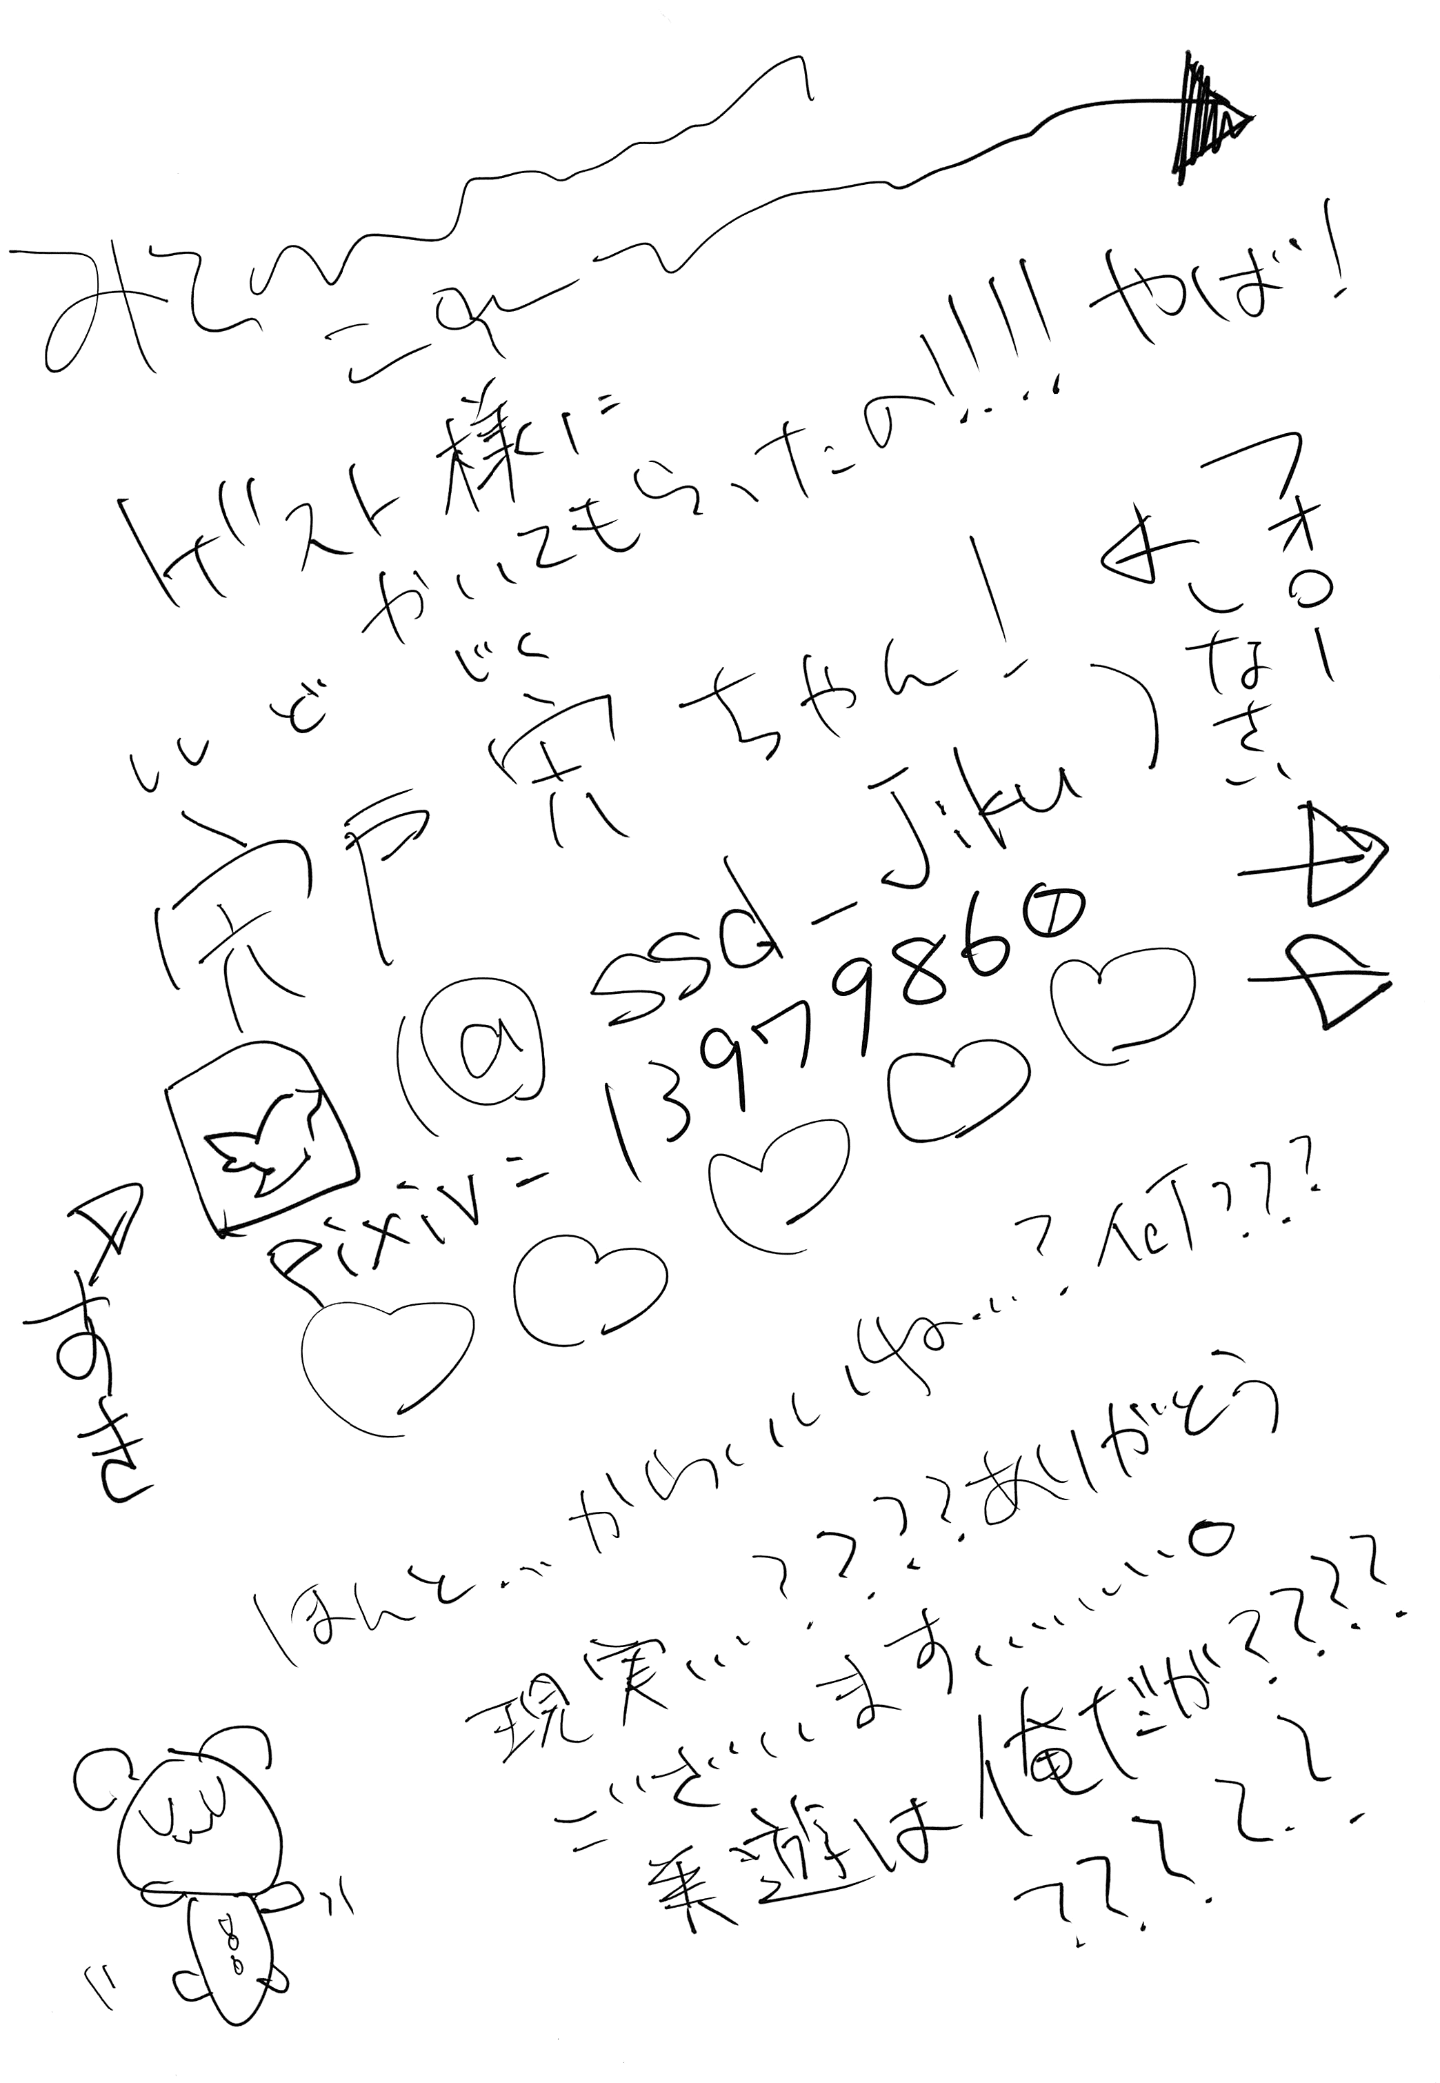 みて
これ
ゲスト様に
かいてもらったの!!!!やば!
フォロー
しなさい
ししど じく
宍戸 宍ちゃん!
(@ssd-Jiku)
pixiv=13979860
すき
ほんと…かわいいね…?何???
現実…?????ありがとう
ございます………。
乗遊は俺だが????
?????